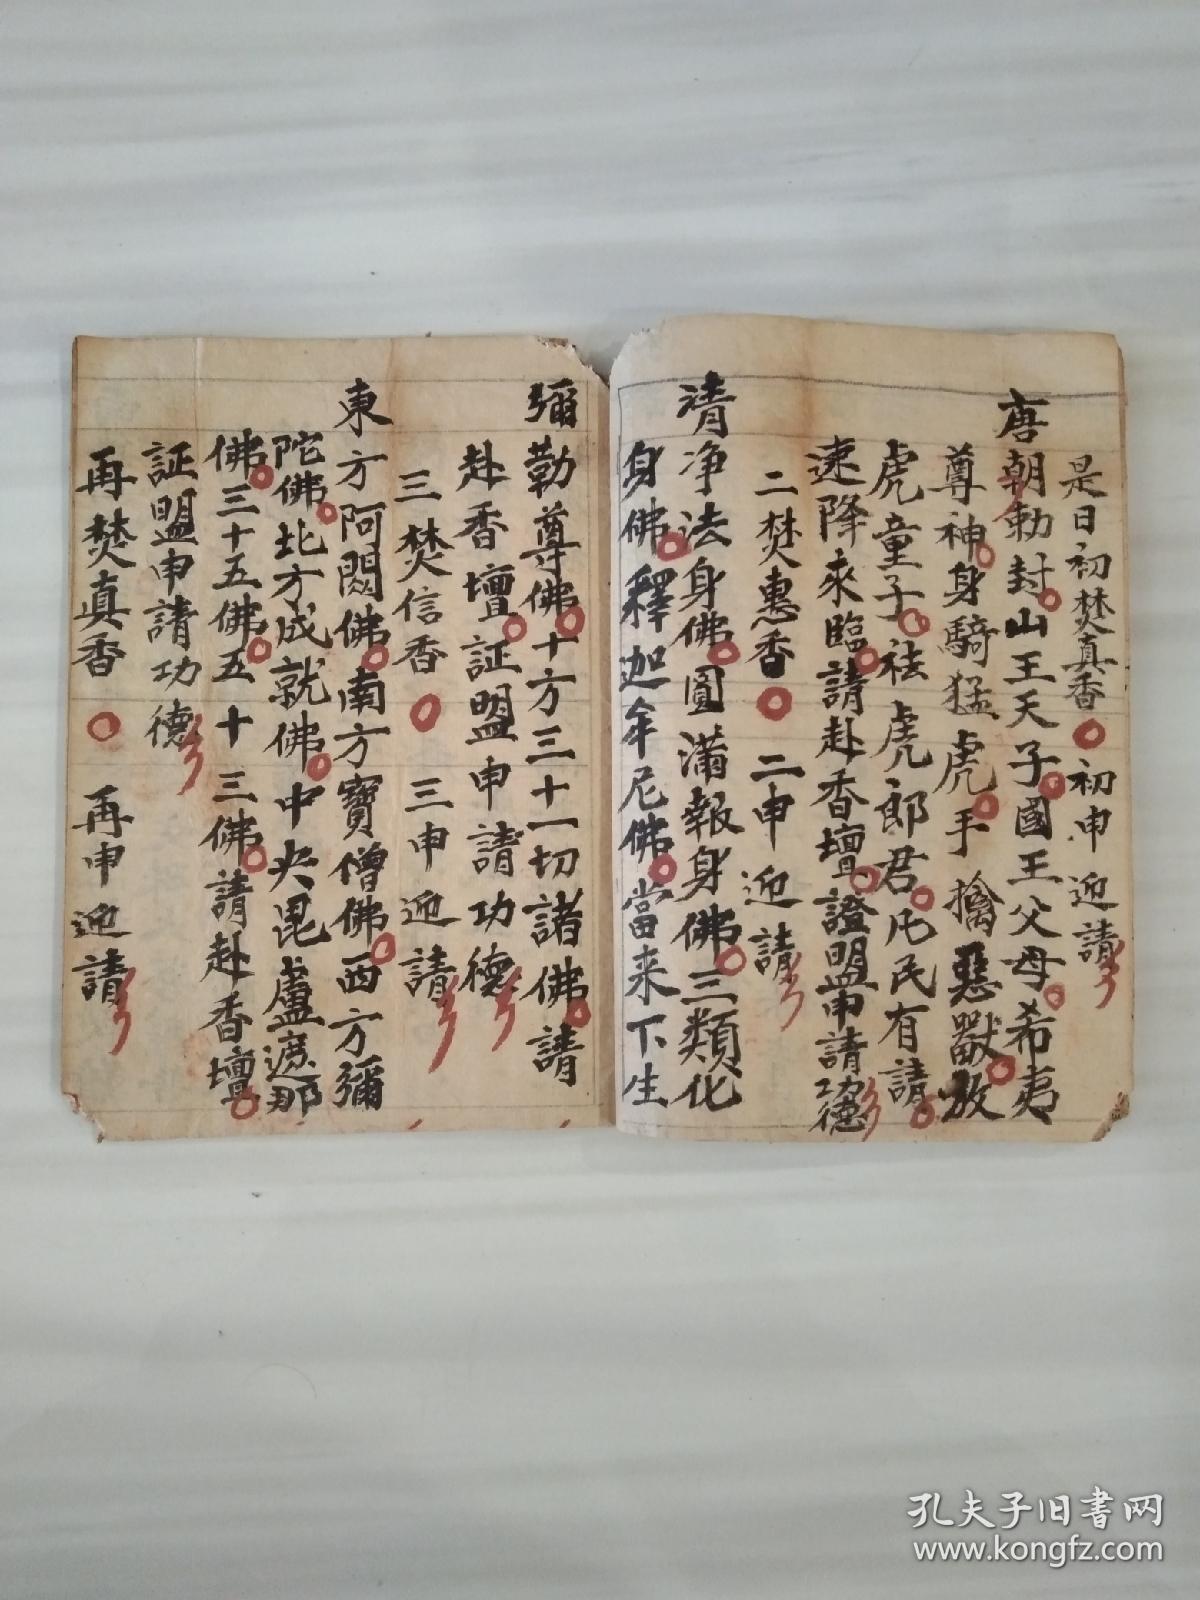 是日初焚真香 初申迎請
唐朝勅封山王天子國王父母希夷
尊神身騎猛虎手擒惡獸放
虎童子祛虎郎君凡民有請
速降來臨請赴香壇證盟申請功德
二焚惠香 二申迎請
清净法身佛圓滿報身佛三類化
身佛釋迦牟尼佛當来下生
彌勒尊佛十方三十一切諸佛請
赴香壇証盟申請功德
三焚信香 三申迎請
東方阿閦佛南方寶僧佛西方彌
陀佛北方成就佛中央毘盧遮那
佛三十五佛五十三佛請赴香壇
証盟申請功德
再焚真香 再申迎請
孔夫子旧书网
www.kongfz.com